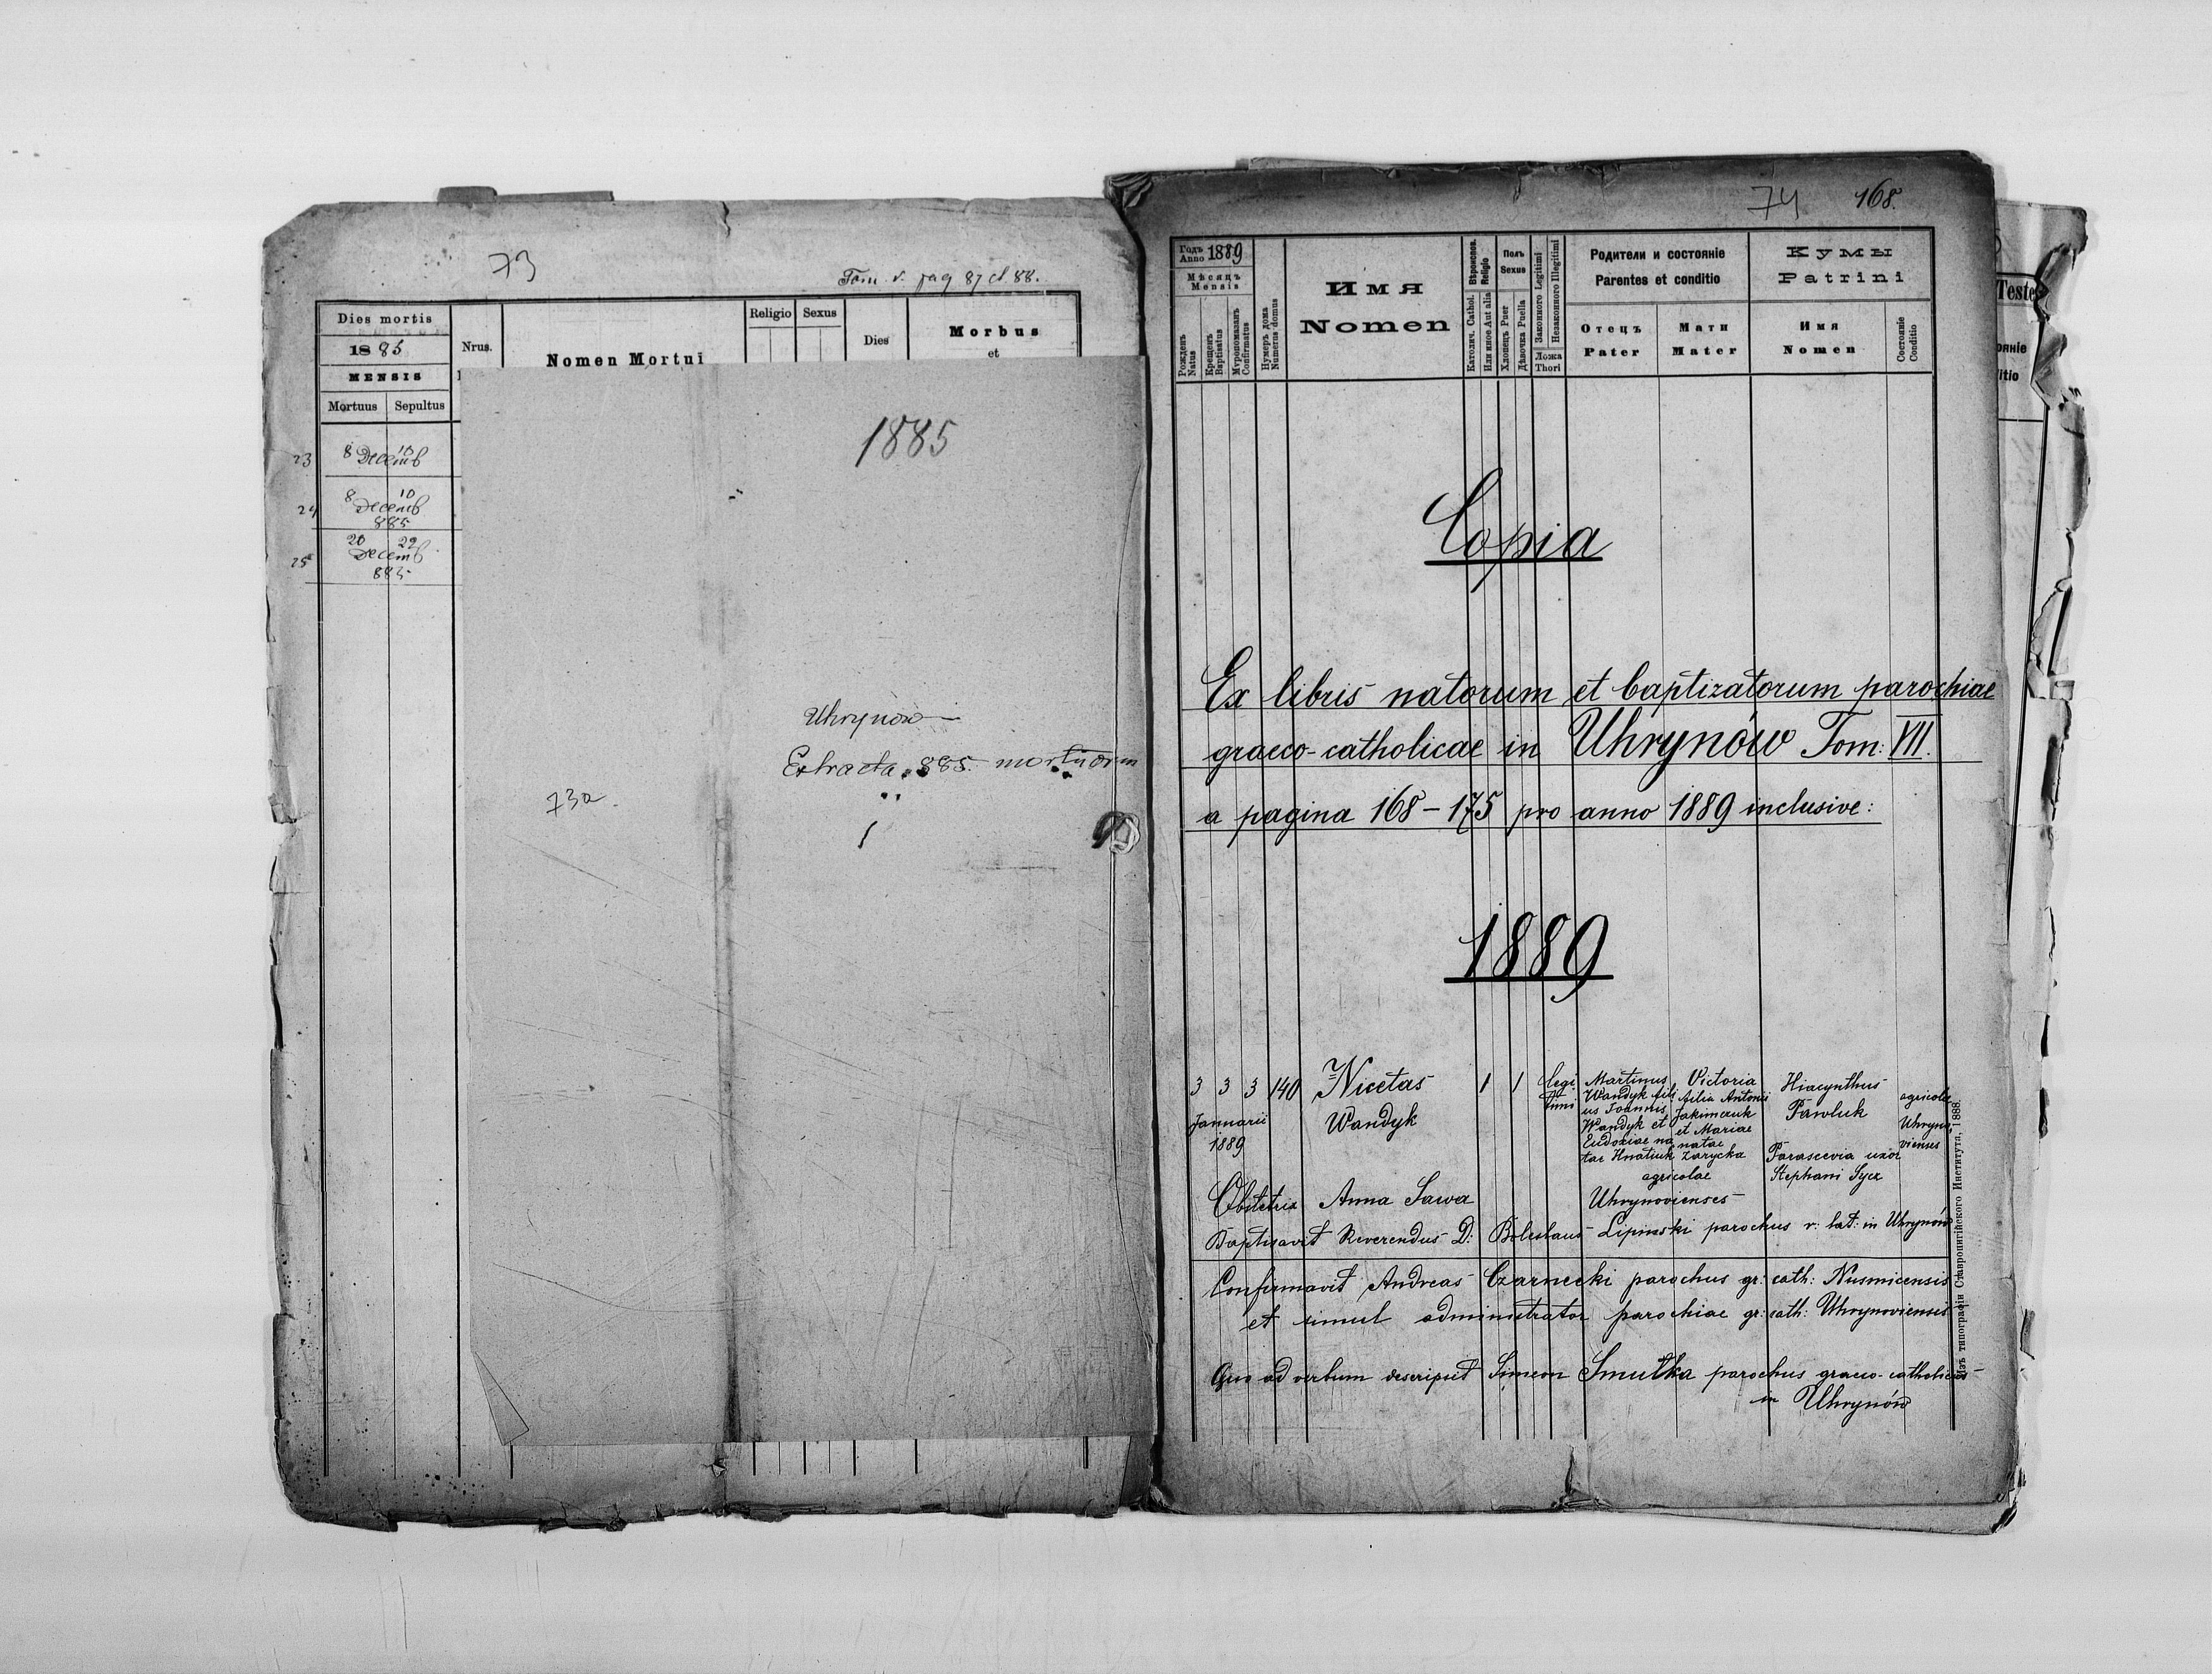 73
Tom. V. pag 87 et 88.
Dies mortis
1885
MENSIS
Mortuus Sepultus
Nrus.
Nomen Mortui
Religio Sexus
Dies
Morbus
et
23 8 10
Decemb
24 8 10
Decemb
885
25 20 22
Decemb
885
1885
Uhrynow
Extracta 885. mortuorum
73a.
1
74 168.
Годъ
Anno 1889
Мѣсяцъ
Mensis
Рожденъ
Natus
Крещенъ
Baptisatus
Муропомазанъ
Confirmatus
Нумеръ дома
Numerus domus
Имя
Nomen
Вѣроиспов.
Religio
Католич. Cathol.
Или иное Aut alia
Полъ
Sexus
Хлопецъ Puer
Дѣвочка Puella
Законного Legitimi
Незаконного Illegitimi
Ложа
Thori
Родители и состояніе
Parentes et conditio
Отецъ
Pater
Мати
Mater
Кумы
Patrini
Имя
Nomen
Состояніе
Conditio
Copia
Ex libris natorum et baptizatorum parochiae
graeco-catholicae in Uhrynów Tom: VII.
a pagina 168-175 pro anno 1889 inclusive:
1889
3 3 3 140
Januarii
1889
Nicetas
Wandyk
1 1
legi
timi
Martinus
Wandyk fili
us Joannis
Wandyk et
Eudoxiae na
tae Hnatiuk
Victoria
filia Antonii
Jakimczuk
et Mariae
natae
Zarycka
agricolae
Uhrynovienses
Hiacynthus
Pawluk
Parascevia uxor
Stephani Sycz
agricolae
Uhryno
vienses
Obstetrix Anna Sawa
Baptisavit Reverendus D: Boleslaus Lipinski parochus r: lat: in Uhrynów
Confirmavit Andreas Czarnecki parochus gr: cath: Nusmicensis
et simul administrator parochiae gr: cath: Uhrynoviensis
Quo ad verbum descripsit Simeon Smulka parochus graeco-catholicus
in Uhrynów
Изъ типографіи Ставропигійского Института, 1888.
Teste
ояніе
itio